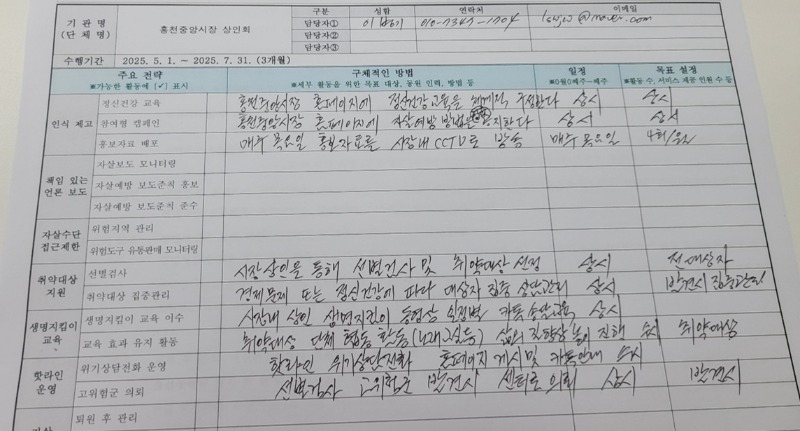 기 관 명
(단 체 명)
홍천중앙시장 상인회
구분 성함 연락처 이메일
담당자①
담당자②
담당자③
수행기간 2025. 5.1. ~ 2025. 7.31. (3개월)
주요 전략 구체적인 방법 일정 목표 설정
※가능한 활동에 [✓] 표시 ※세부 활동을 위한 목표 대상, 동원 인력, 방법 등 ※0월0째주-째주 ※활동 수, 서비스 제공 인원 수 등
인식 제고
정신건강 교육 홍천중앙시장 홈페이지에 정신건강교육을 상시 상시
참여형 캠페인 홍천중앙시장 홈페이지에 자살예방 방법을 상시 상시
홍보자료 배포 매주 목요일 홍보자료를 시장내 CCTV로 방송 매주 목요일 4회/월
책임 있는
언론 보도
자살보도 모니터링
자살예방 보도준칙 홍보
자살예방 보도준칙 준수
자살수단
접근제한
위험지역 관리
위험도구 유통판매 모니터링
취약대상
지원
선별검사 시장상인을 통해 선별검사 및 취약대상 선정 상시 전 대상자
취약대상 집중관리 경제문제 또는 정신건강에 따라 대상자 집중 상담관리 상시 발견시 집중관리
생명지킴이
교육
생명지킴이 교육 이수 시장내 상인 생명지킴이 동영상 상시
교육 효과 유지 활동 취약대상 단체 협동 활동(노래교실등) 취약대상
핫라인
운영
위기상담전화 운영 핫라인 위기상담전화 홈페이지 게시 및 카톡안내
고위험군 의뢰 선별검사 고위험군 발견시 센터로 의뢰 상시 발견시
퇴원 후 관리